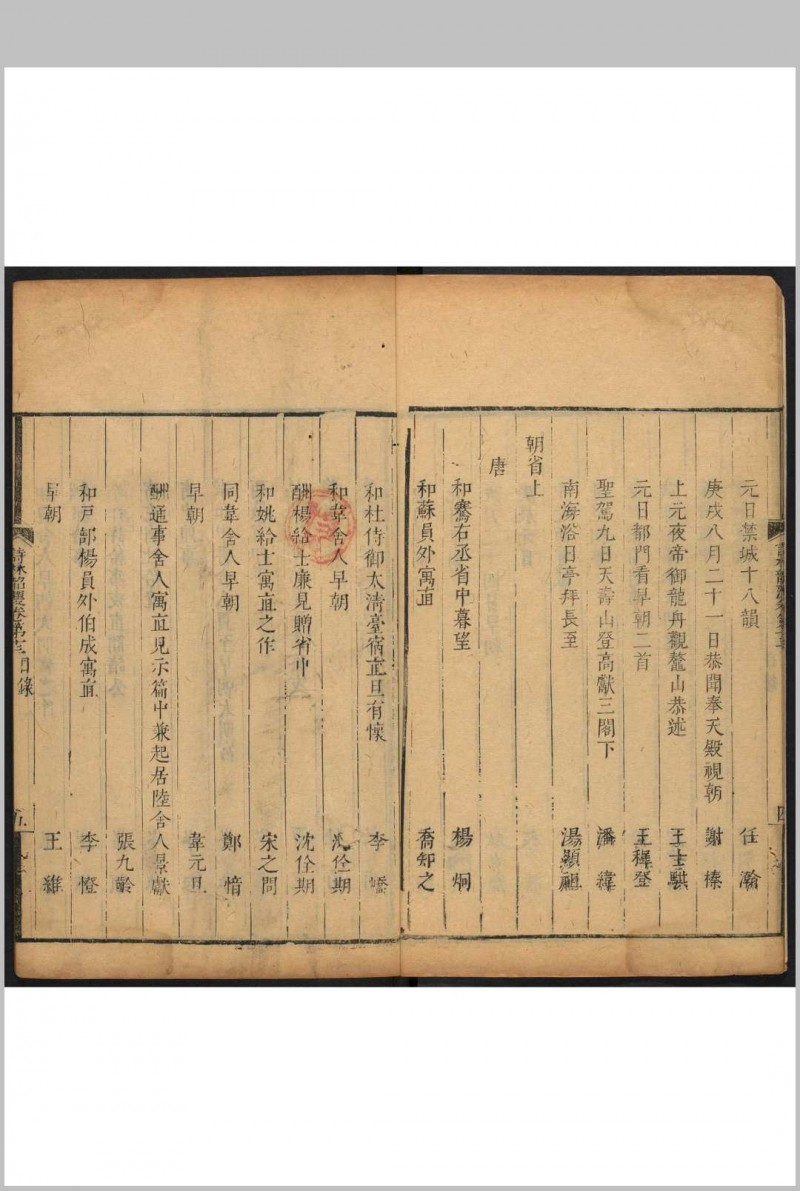 元日禁城十八韻 任瀚
庚戌八月二十一日恭聞奉天殿視朝 謝榛
上元夜帝御龍舟觀鰲山恭述 王士騏
元日都門看早朝二首 王穉登
聖駕九日天壽山登高獻三閣下 潘緯
南海浴日亭拜長至 湯顯祖
朝省上
唐
和騫右丞省中暮望 楊炯
和蘇員外寓直 喬知之
和杜侍御太清臺宿直旦有懷 李嶠
和韋舍人早朝 沈佺期
酬楊給士廉見贈省中 沈佺期
和姚給士寓直之作 宋之問
同韋舍人早朝 鄭愔
早朝 韋元旦
酬通事舍人寓直見示篇中兼起居陸舍人景獻
張九齡
和戶部楊員外伯成寓直 李憕
早朝 王維
詩林韶濩卷第十三目錄 五